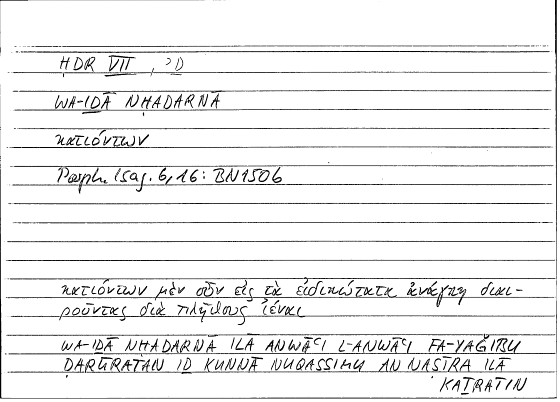 ḤDR VII , ʾD
WA-IḎĀ NḤADARNĀ
κατιόντων
Porph. Isag. 6,16: BN150b
κατιόντων μὲν οὖν εἰς τὰ εἰδικώτατα ἀνάγκη διαι-
ροῦντας διὰ πλήθους ἰέναι
WA-IḎĀ NḤADARNĀ ILĀ ANWĀʿI L-ANWĀʿI FA-YAǦIBU
ḌARŪRATAN IḎ KUNNĀ NUQASSIMU AN NAṢĪRA ILĀ
KAṮRATIN